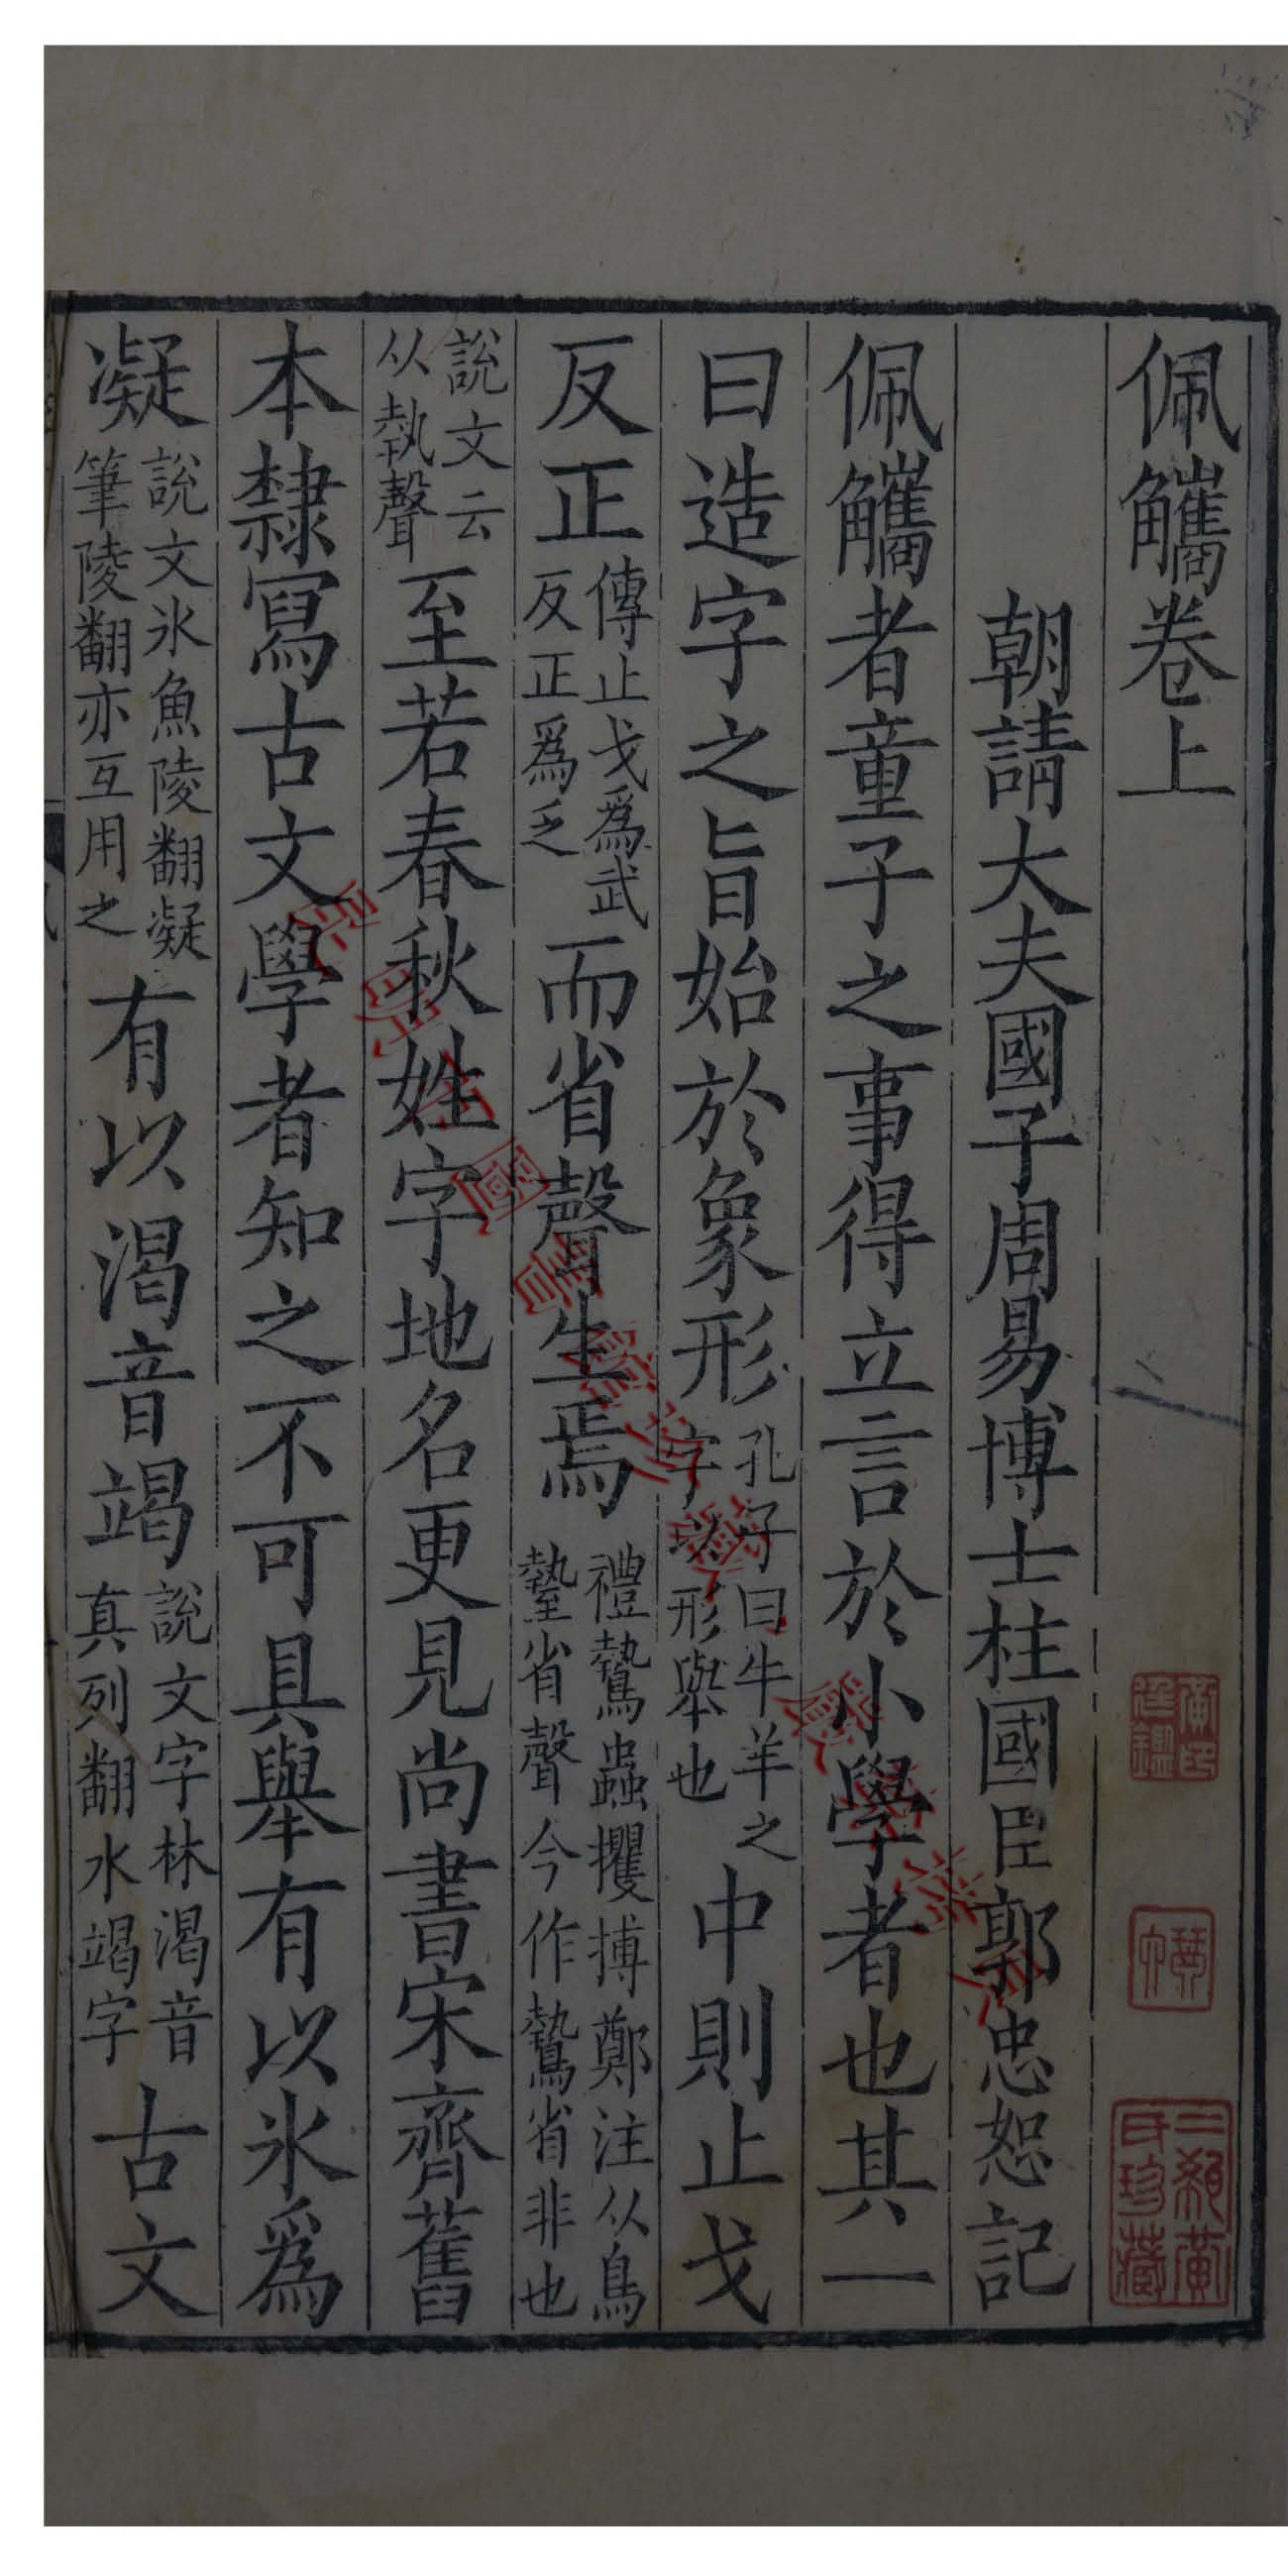 佩觿卷上
朝請大夫國子周易博士柱國臣郭忠恕記
佩觿者童子之事得立言於小學者也其一
曰造字之旨始於象形孔子曰牛羊之字以形舉也中則止戈
反正傳止戈爲武反正爲乏而省聲生焉禮鷙蟲攫搏鄭注从鳥蟄省聲今作鷙省非也
說文云从執聲至若春秋姓字地名更見尚書宋齊舊
本隸寫古文學者知之不可具舉有以冰爲
凝說文冰魚陵翻凝筆陵翻亦互用之有以渴音竭說文字林渴音竭字真列翻水竭字古文